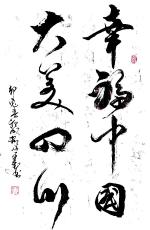 幸福中国
大美四川